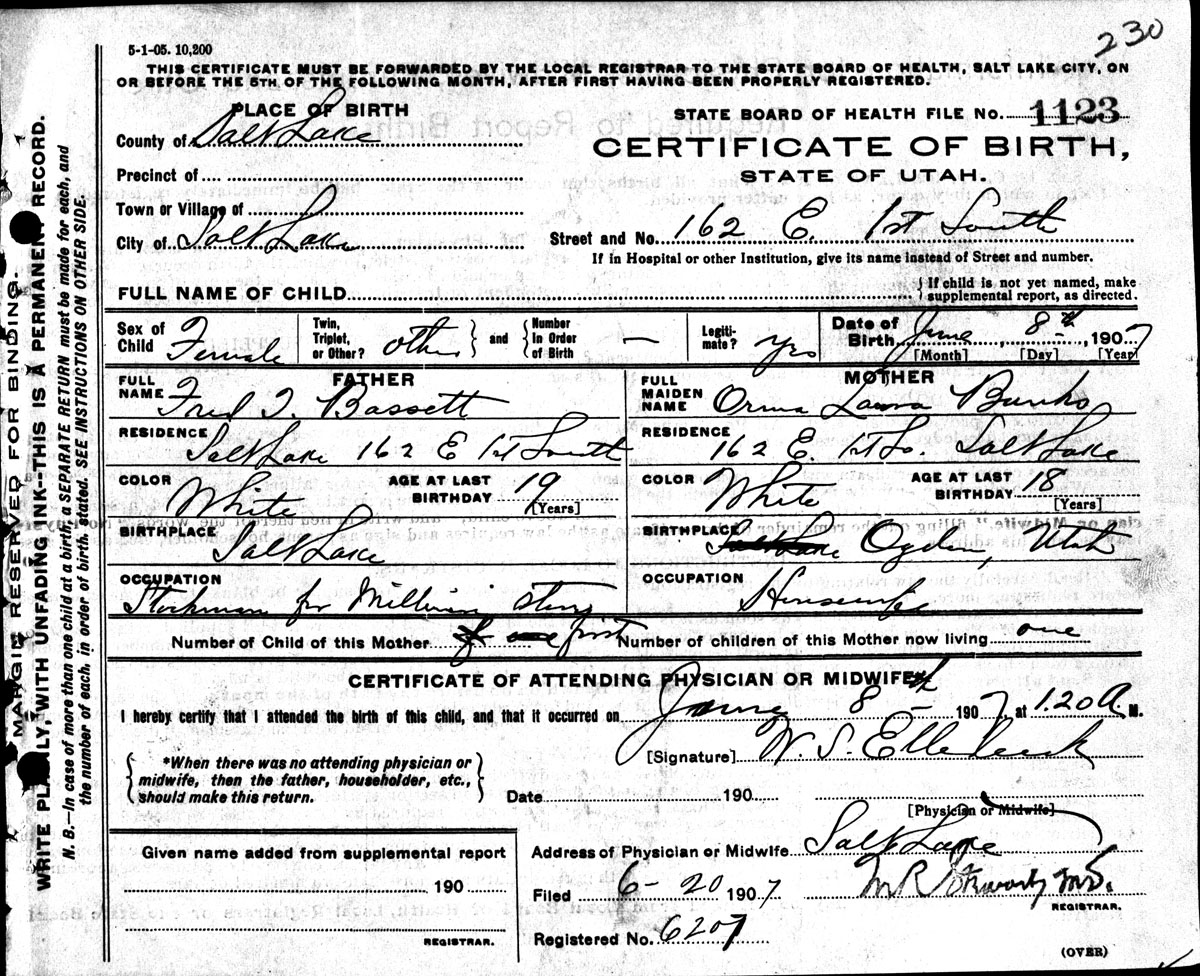 230
5-1-05. 10,200
THIS CERTIFICATE MUST BE FORWARDED BY THE LOCAL REGISTRAR TO THE STATE BOARD OF HEALTH, SALT LAKE CITY, ON
OR BEFORE THE 5TH OF THE FOLLOWING MONTH, AFTER FIRST HAVING BEEN PROPERLY REGISTERED.
PLACE OF BIRTH
County of Salt Lake
Precinct of
Town or Village of
City of Salt Lake
STATE BOARD OF HEALTH FILE No. 1123
CERTIFICATE OF BIRTH,
STATE OF UTAH.
Street and No. 162 E. 1st South
If in Hospital or other Institution, give its name instead of Street and number.
FULL NAME OF CHILD
If child is not yet named, make
supplemental report, as directed.
Sex of Child Female
Twin, Triplet, or Other? other and Number In Order of Birth —
Legiti-mate? yes
Date of Birth June 8th, 1907
[Month] [Day] [Year]
FATHER
FULL NAME Fred T. Bassett
RESIDENCE Salt Lake 162 E 1st South
COLOR White AGE AT LAST BIRTHDAY 19 [Years]
BIRTHPLACE Salt Lake
OCCUPATION Stockman for Store
MOTHER
FULL MAIDEN NAME Orma Laura Banks
RESIDENCE 162 E. 1st So. Salt Lake
COLOR White AGE AT LAST BIRTHDAY 18 [Years]
BIRTHPLACE Salt Lake Ogden, Utah
OCCUPATION Housewife
Number of Child of this Mother one first Number of children of this Mother now living one
CERTIFICATE OF ATTENDING PHYSICIAN OR MIDWIFE*
I hereby certify that I attended the birth of this child, and that it occurred on June 8th 1907, at 1.20 A. M.
[Signature] W. S. Ellerbeck
*When there was no attending physician or
midwife, then the father, householder, etc.,
should make this return.
Date 190
[Physician or Midwife]
Given name added from supplemental report
190
REGISTRAR.
Address of Physician or Midwife Salt Lake
Filed 6-20 1907, M.D.
REGISTRAR.
Registered No. 6207
(OVER)
MARGIN RESERVED FOR BINDING.
WRITE PLAINLY, WITH UNFADING INK--THIS IS A PERMANENT RECORD.
N. B.—In case of more than one child at a birth, a SEPARATE RETURN must be made for each, and
the number of each, in order of birth, stated. SEE INSTRUCTIONS ON OTHER SIDE.